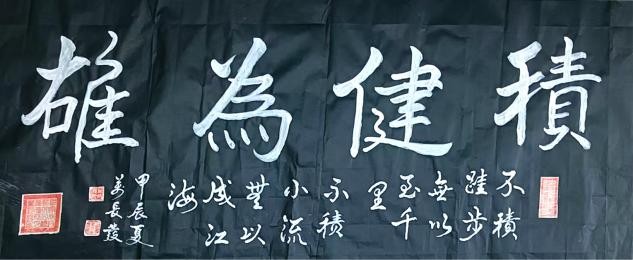 積健為雄
不積
跬步
無以
至千
里
不積
小流
無以
成江
海
甲辰夏